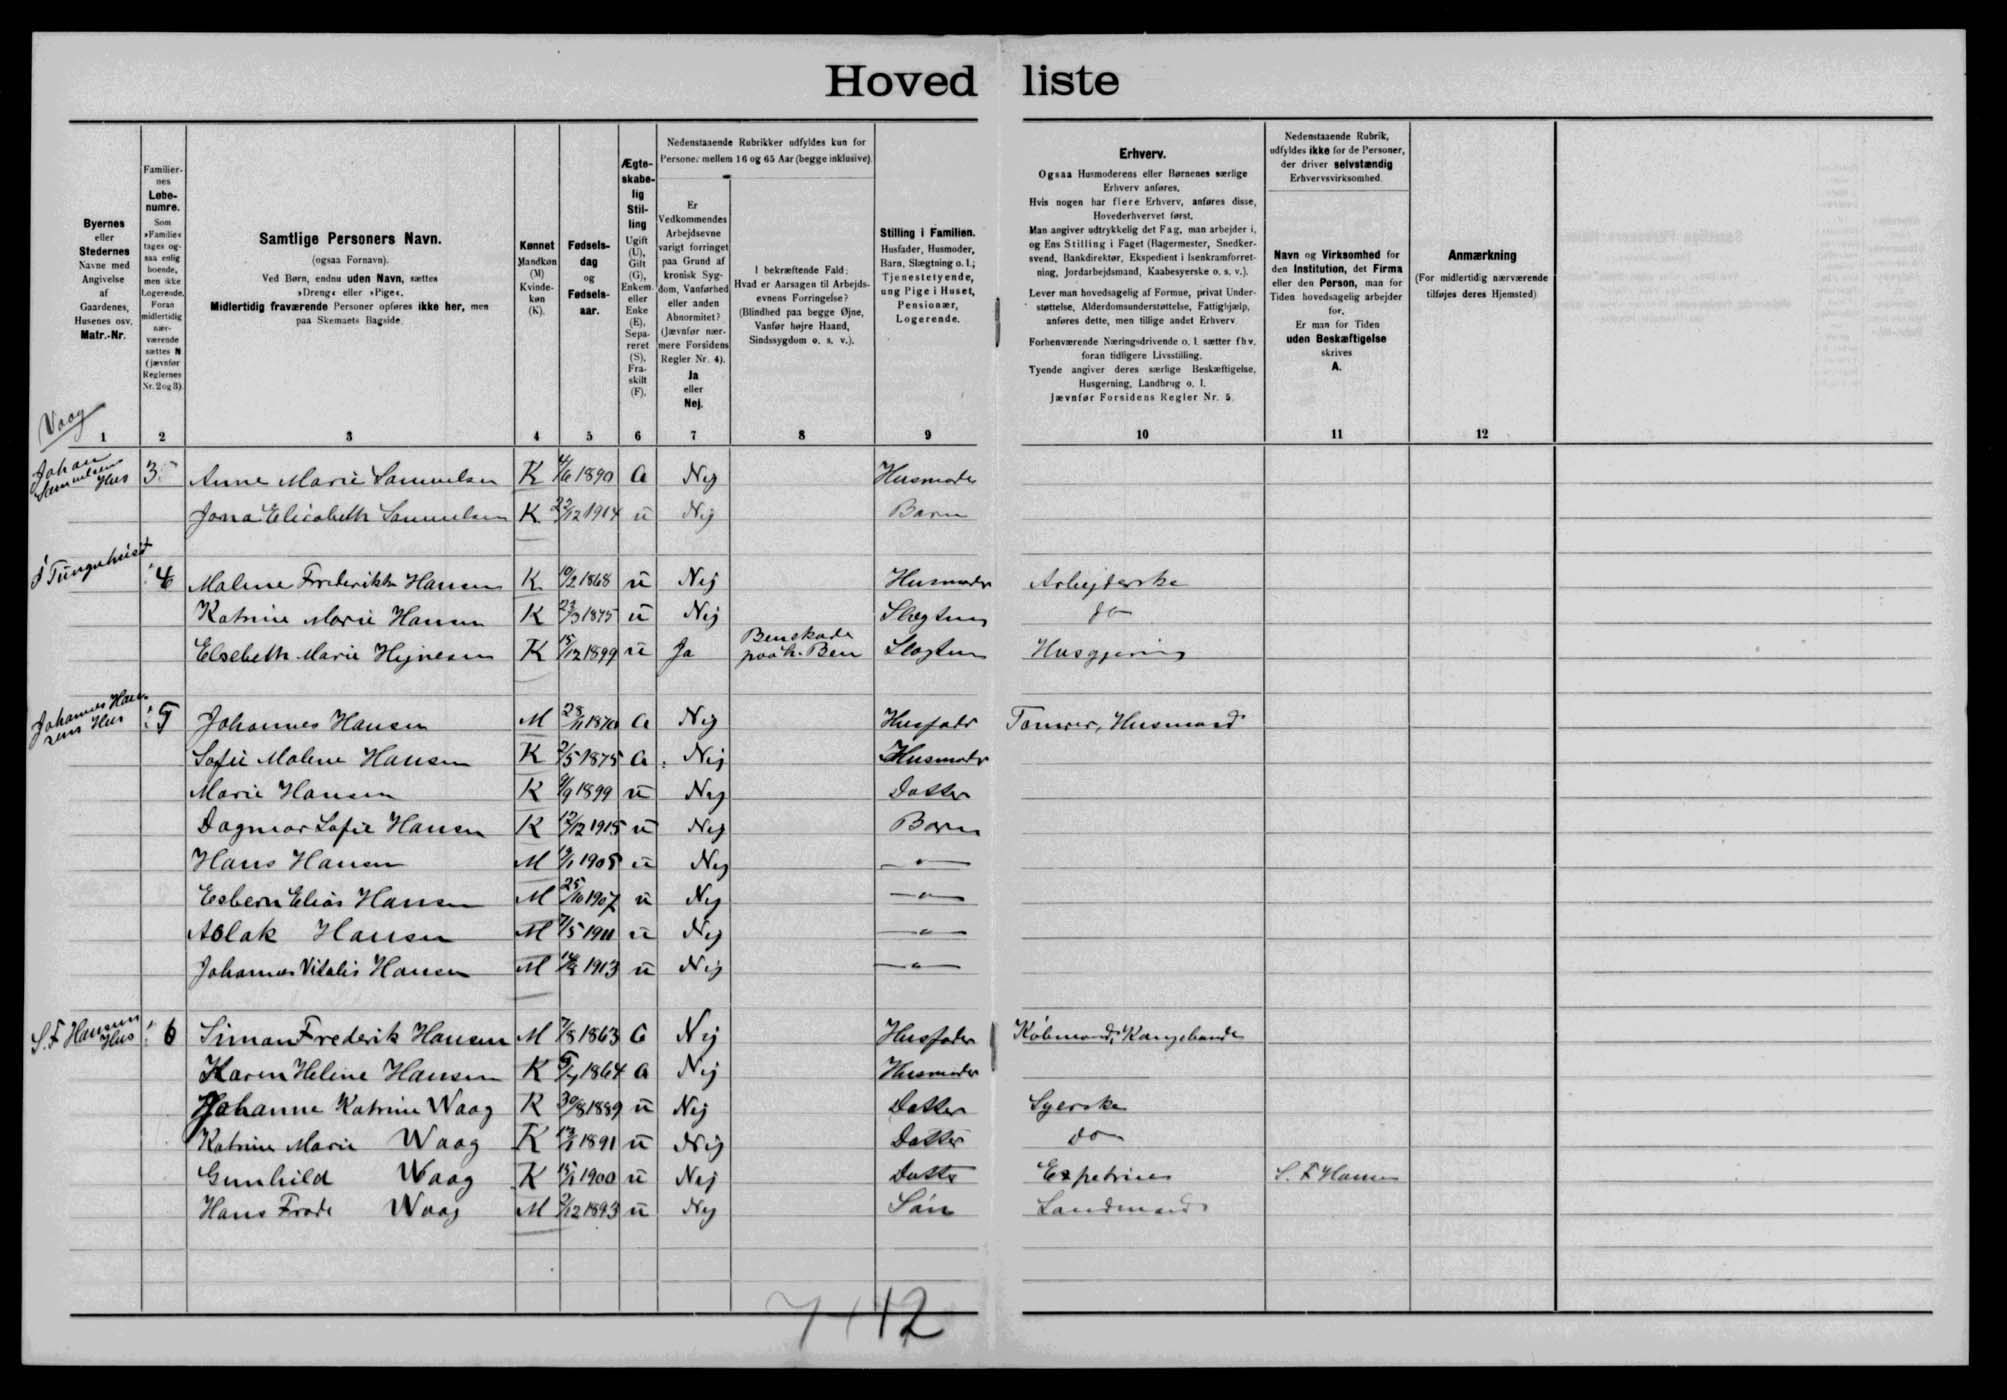 Hovedliste
Byernes
eller
Stedernes
Navne med
Angivelse
af
Gaardenes,
Husenes osv.
Matr.-Nr.
Familiernes
Løbenumre.
Som
»Familie«
tages ogsaa enlig
boende,
men ikke
Logerende.
Foran
midlertidig
nærværende
sættes N
(jævnfør
Reglernes
Nr. 2 og 3)
Samtlige Personers Navn.
(ogsaa Fornavn).
Ved Børn, endnu uden Navn, sættes
»Dreng« eller »Pige«.
Midlertidig fraværende Personer opføres ikke her, men
paa Skemaets Bagside.
Kønnet
Mandkøn
(M)
Kvindekøn
(K).
Fødselsdag
og
Fødselsaar.
Ægteskabelig
Stilling
Ugift
(U),
Gift
(G),
Enkem.
eller
Enke
(E),
Separeret
(S),
Fraskilt
(F).
Nedenstaaende Rubrikker udfyldes kun for
Personer mellem 16 og 65 Aar (begge inklusive).
Er
Vedkommendes
Arbejdsevne
varigt forringet
paa Grund af
kronisk Sygdom, Vanførhed
eller anden
Abnormitet?
(Jævnfør nærmere Forsidens
Regler Nr. 4).
Ja
eller
Nej.
I bekræftende Fald:
Hvad er Aarsagen til Arbejdsevnens Forringelse?
(Blindhed paa begge Øjne,
Vanfør højre Haand,
Sindssygdom o. s. v.).
Stilling i Familien.
Husfader, Husmoder,
Barn, Slægtning o. l.;
Tjenestetyende,
ung Pige i Huset,
Pensionær,
Logerende.
Erhverv.
Ogsaa Husmoderens eller Børnenes særlige
Erhverv anføres.
Hvis nogen har flere Erhverv, anføres disse,
Hovederhvervet først.
Man angiver udtrykkelig det Fag, man arbejder i,
og Ens Stilling i Faget (Bagermester, Snedkersvend, Bankdirektør, Ekspedient i Isenkramforretning, Jordarbejdsmand, Kaabesyerske o. s. v.).
Lever man hovedsagelig af Formue, privat Understøttelse, Alderdomsunderstøttelse, Fattighjælp,
anføres dette, men tillige andet Erhverv
Forhenværende Næringsdrivende o. l. sætter fhv.
foran tidligere Livsstilling.
Tyende angiver deres særlige Beskæftigelse,
Husgerning, Landbrug o. l.
Jævnfør Forsidens Regler Nr. 5.
Nedenstaaende Rubrik,
udfyldes ikke for de Personer,
der driver selvstændig
Erhvervsvirksomhed.
Navn og Virksomhed for
den Institution, det Firma
eller den Person, man for
Tiden hovedsagelig arbejder
for.
Er man for Tiden
uden Beskæftigelse
skrives
A.
Anmærkning
(For midlertidig nærværende
tilføjes deres Hjemsted)
Vaag
1 2 3 4 5 6 7 8 9 10 11 12
Johan Samuelsens Hus 3 Anne Marie Samuelsen K 4/6 1890 G Nej Husmoder
Jona Elisabeth Samuelsen K 1914 u Nej Barn
í Túnguhúsi 4 Malene Frederikke Hansen K 10/2 1868 u Nej Husmoder Arbejderske
Katrine Marie Hansen K 23/3 1875 u Nej Slægtning do
Elsebeth Marie Hejnesen K 15/12 1899 u Ja Benskade paa h. Ben Slægtn Husgjerning
Johannes Hansens Hus 5 Johannes Hansen M 1870 G Nej Husfader Tømrer, Husmand
Sofie Malene Hansen K 2/5 1875 G Nej Husmoder
Marie Hansen K 9/9 1899 u Nej Datter
Dagmar Sofie Hansen K 12/12 1915 u Nej Barn
Hans Hansen M 1905 u Nej — " —
Esbern Elias Hansen M 25/10 1907 u Nej — " —
Aslak Hansen M 7/5 1911 u Nej — " —
Johannes Vitalis Hansen M 1913 u Nej — " —
S. F Hansens Hus 6 Simon Frederik Hansen M 7/8 1863 G Nej Husfader Købmand, Kongebonde
Karen Helene Hansen K 1864 G Nej Husmoder
Johanne Katrine Waag K 30/8 1889 u Nej Datter Syerske
Katrine Marie Waag K 1891 u Nej Datter do
Gunhild Waag K 15/1 1900 u Nej Datter Expetrice S. F Hansen
Hans Frode Waag M 2/12 1893 u Nej Søn Landmand
7 + 12